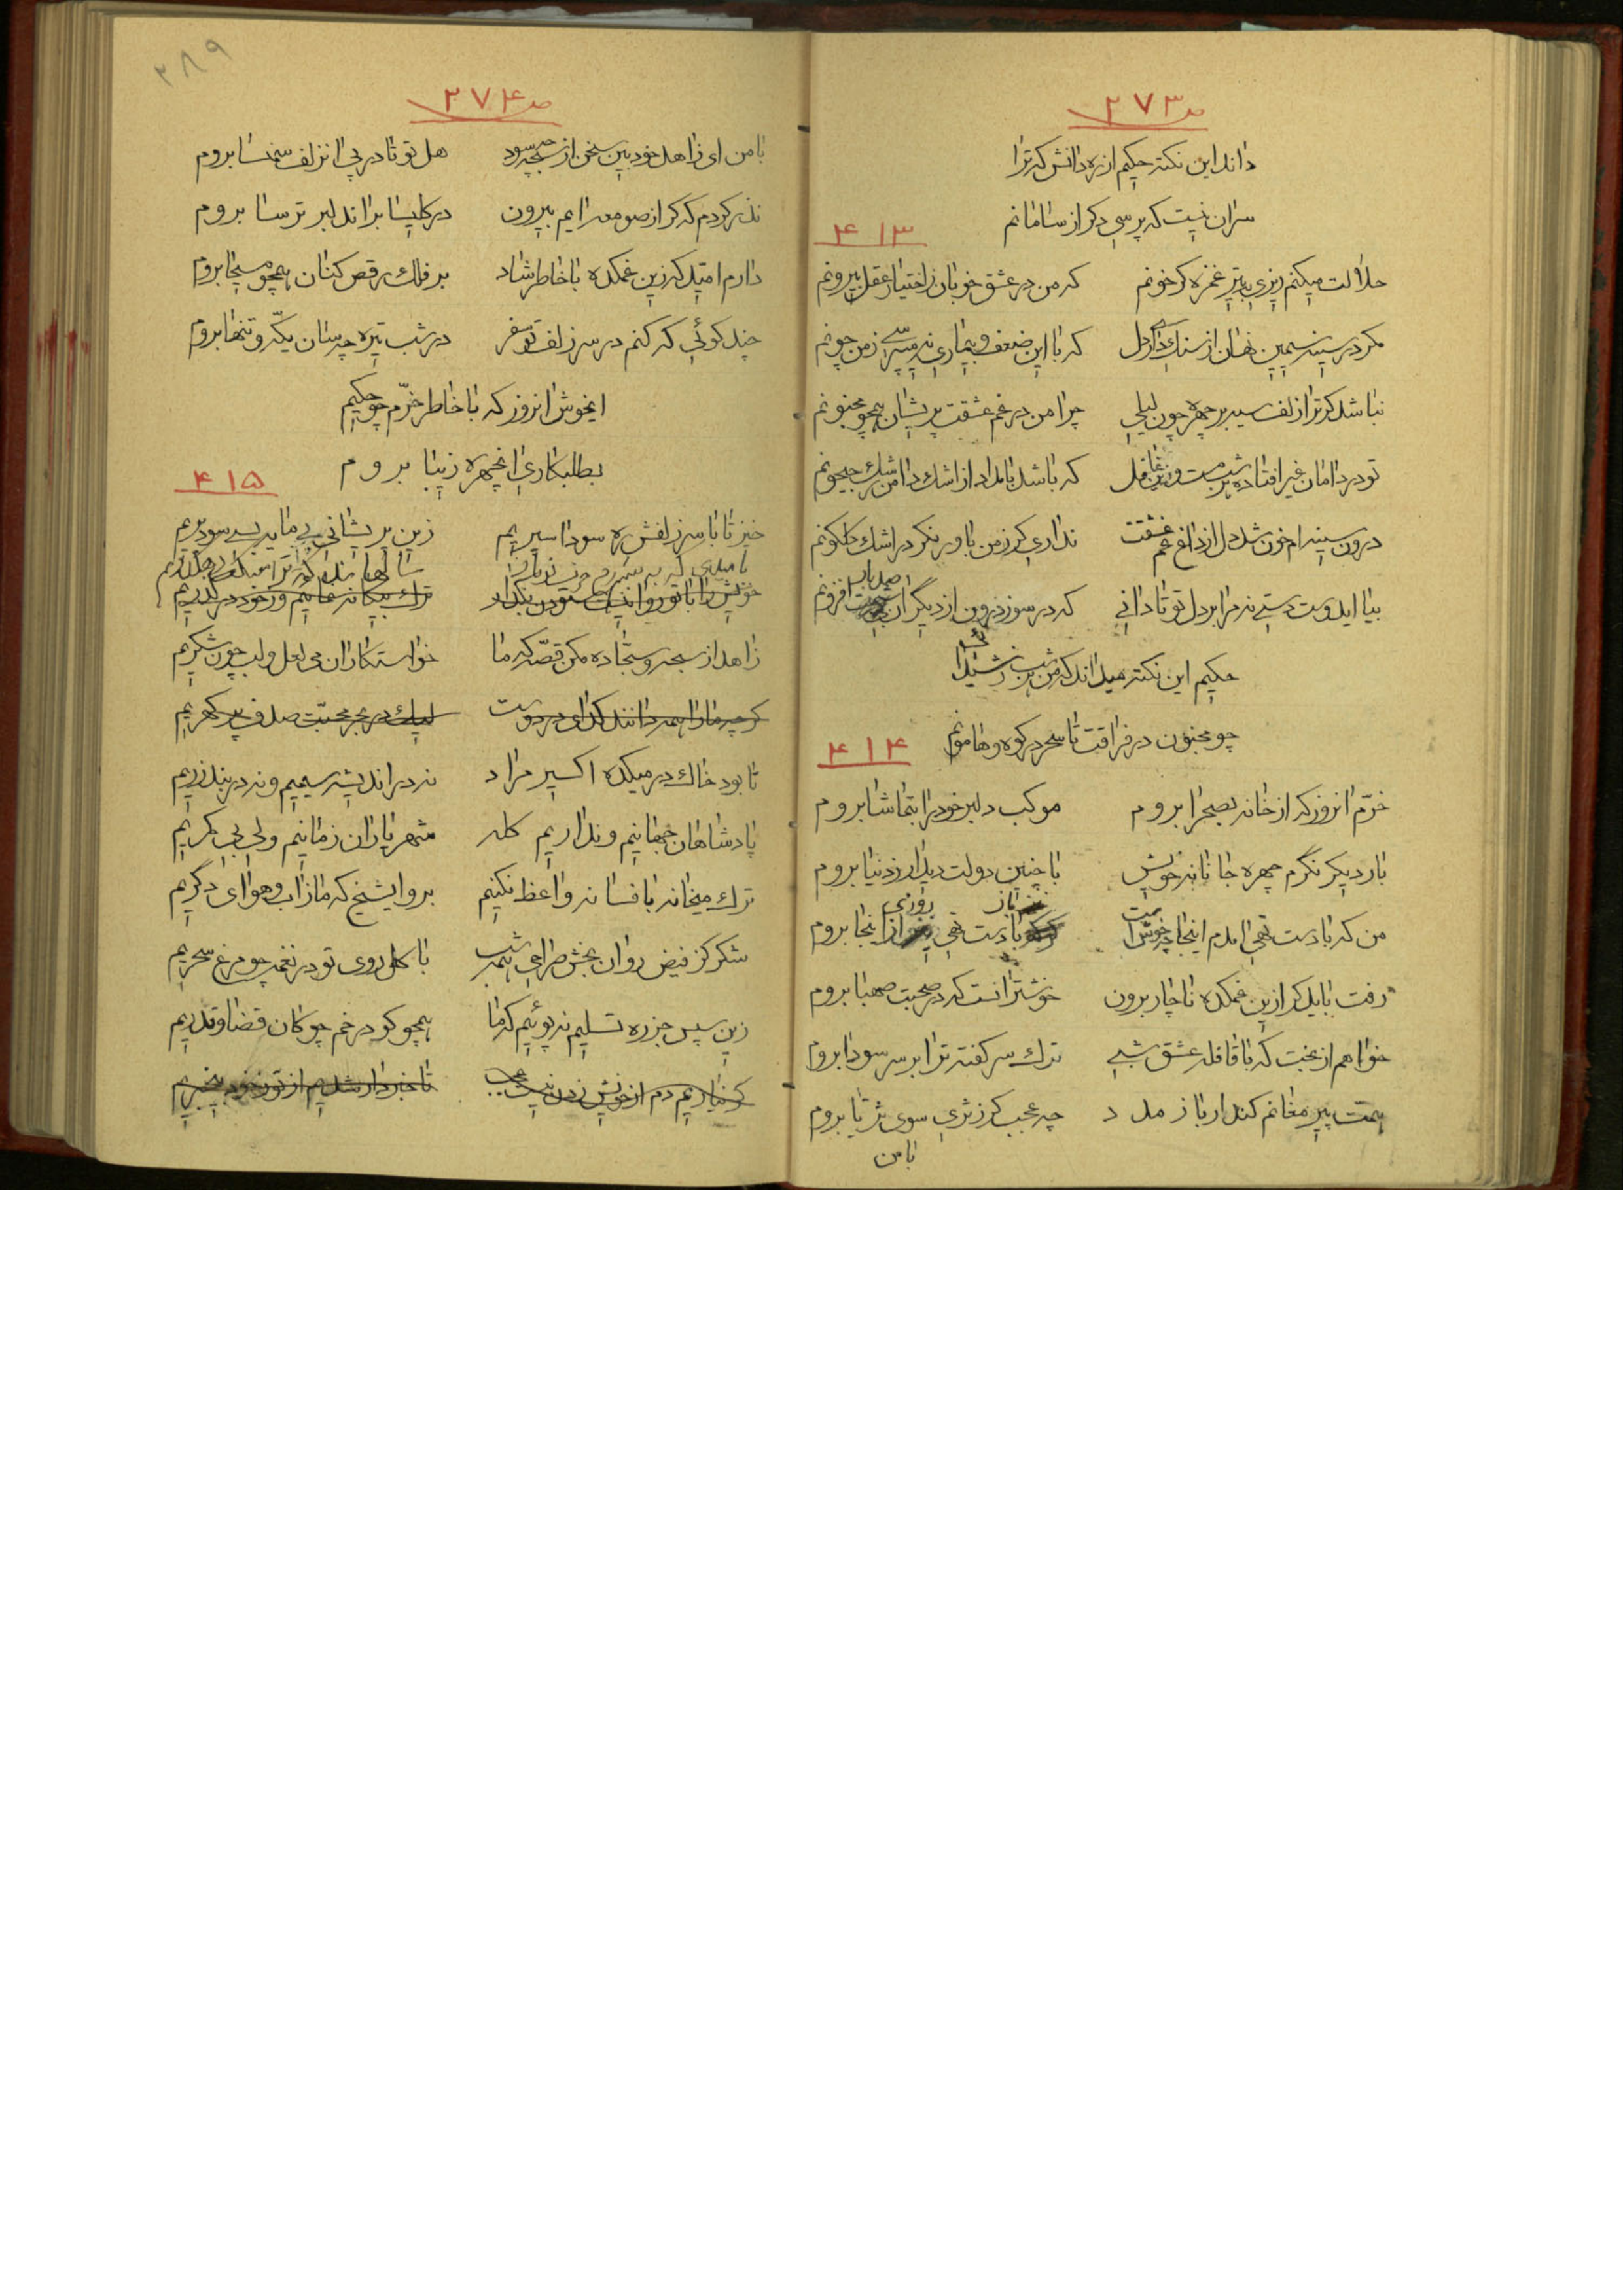 صـ ۲۷۳
داند این نکته حکیم از ره دانش که ترا
سر آن نیست که پرسی دگر از سامانم
۴۱۳
حلالت میکنم ریزی به تیر غمزه گر خونم که من در عشق خوبان ز اختیار عقل بیرونم
مگر در سینه سیمین نهان از سنک داری دل که با این ضعف و بیماری نمیپرسی ز من چونم
نباشد گر ترا زلف سیه بر چهره چون لیلی چرا من در غم عشقت پریشان همچو مجنونم
تو در دامان غیر افتاده هر شب مست و زین غافل که باشد بامداد از اشک دامن رشک جیحونم
درون سینه‌ام خون شد دل از داغ غم عشقت نداری گر ز من باور نگر در اشک گلگونم
بیا ایدوست دستی نه مرا بر دل تو تا دانی که در سوز درون از دیگران صد بار افزونم
حکیم این نکته میداند که من هر شب من شیدا
چو مجنون در فراقت تا سحر در کوه و هامونم
۴۱۴
خرّم آنروز که از خانه بصحرا بروم موکب دلبر خود را بتماشا بروم
بار دیگر نگرم چهره جانانه خویش با چنین دولت دیدار ز دنیا بروم
من که با دست تهی آمدم اینجا چه خوش است باز روزی با دست تهی از اینجا بروم
رفت باید گر ازین غمکده ناچار برون خوشتر آنست که در صحبت صهبا بروم
خواهم از بخت که با قافله عشق شبی ترک سر گفته ترا بر سر سودا بروم
همت پیر مغانم کند ار باز مدد چه عجب گر ز ثری سوی ثریا بروم
با من
۲۸۹
صـ ۲۷۴
با من ای زاهد خودبین سخن از سبحه چه سود هل تو تا در پی آن زلف سمنسا بروم
نذر کردم که گر از صومعه آیم بیرون در کلیسا بر آن دلبر ترسا بروم
دارم امّید که زین غمکده با خاطر شاد بر فلک رقص کنان همچو مسیحا بروم
چند گوئی که کنم در سر زلف تو سفر در شب تیره چه سان یکّه و تنها بروم
ایخوش آنروز که با خاطر خرّم چو حکیم
بطلبکاری آنچهره زیبا بروم
۴۱۵
خیز تا با سر زلفش ره سودا سپریم زین پریشانی بی مایه بسی سود بریم
سالها
خویش را با تو روا نیست ترک بیگانه نمائیم و ز خود در گذریم
زاهد از سبحه و سجّاده مکن قصّه که ما خواستکاران می لعل و لب چون شکریم
گر چه ما را همه دانند گدای در دوست لیک در بحر محبّت صدف پر گهریم
تا بود خاک در میکده اکسیر مراد نه در اندیشه سیمیم و نه در بند زریم
پادشاهان جهانیم و نداریم کله شهریاران زمانیم ولی بی کمریم
ترک میخانه با فسانه واعظ نکنیم برو ایشیخ که ما زآب و هوای دگریم
شکر کز فیض روان بخش صراحی همه شب با گل روی تو در نغمه چو مرغ سحریم
زین سپس جز ره تسلیم نپوئیم که ما همچو گو در خم چوکان قضا و قدریم
گر نیاریم دم از خویش زدن نیست عجب تا خبردار شدیم از تو ز خود بیخبریم